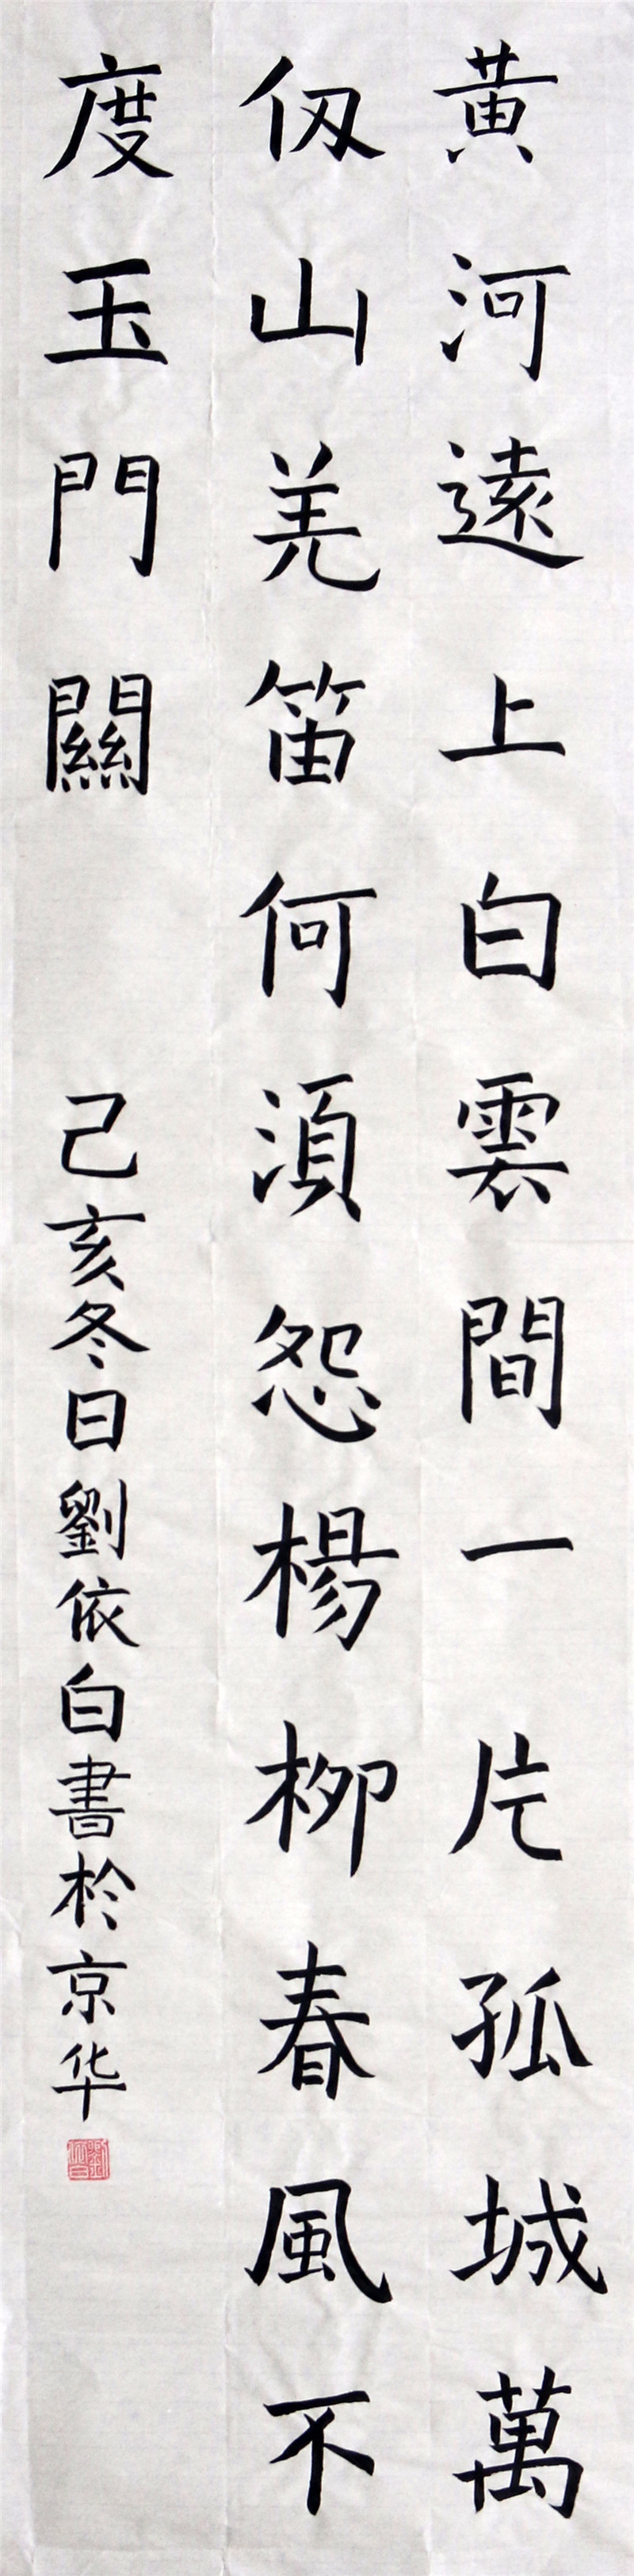 黄河遠上白雲間一片孤城萬
仞山羌笛何須怨楊柳春風不
度玉門關
己亥冬日劉依白書於京华